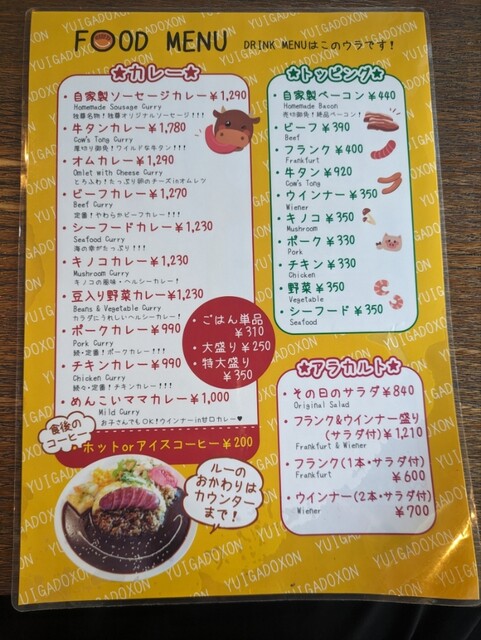 FOOD MENU
DRINK MENUはこのウラです!
★カレー★
・自家製ソーセージカレー¥1,290
Homemade Sousage Curry
独尊名物!独尊オリジナルソーセージ!!!
・牛タンカレー¥1,780
Cow's Tong Curry
厚切り御免!ワイルドな牛タン!!!
・オムカレー¥1,290
Omlet with Cheese Curry
とろふわ!たっぷり卵のチーズinオムレツ
・ビーフカレー¥1,270
Beef Curry
定番!やわらやビーフカレー!!!
・シーフードカレー¥1,230
Seafood Curry
海の幸がたっぷり!!!
・キノコカレー¥1,230
Mushroom Curry
キノコの風味・ヘルシーカレー!
・豆入り野菜カレー¥1,230
Beans & Vegetable Curry
カラダにうれしいヘルシーカレー!
・ポークカレー¥990
Pork Curry
続・定番!ポークカレー!!!
・チキンカレー¥990
Chicken Curry
続々・定番!チキンカレー!!!
・めんこいママカレー¥1,000
Mild Curry
お子さんでもOK!ウインナーin甘口カレー♥
・ごはん単品
¥310
・大盛り¥250
・特大盛り
¥350
食後の
コーヒー
・ホットorアイスコーヒー¥200
ルーの
おかわりは
カウンター
まで!
★トッピング★
・自家製ベーコン¥440
Homemade Bacon
売切御免!絶品ベーコン!
・ビーフ¥390
Beef
・フランク¥400
Frankfurt
・牛タン¥920
Cow's Tong
・ウインナー¥350
Wiener
・キノコ¥350
Mushroom
・ポーク¥330
Pork
・チキン¥330
Chicken
・野菜¥350
Vegetable
・シーフード¥350
Seafood
★アラカルト★
・その日のサラダ¥840
Original Salad
・フランク&ウインナー盛り
(サラダ付)¥1,210
Frankfurt & Wiener
・フランク(1本・サラダ付)
Frankfurt
¥600
・ウインナー(2本・サラダ付)
Wiener
¥700
YUIGADOXON